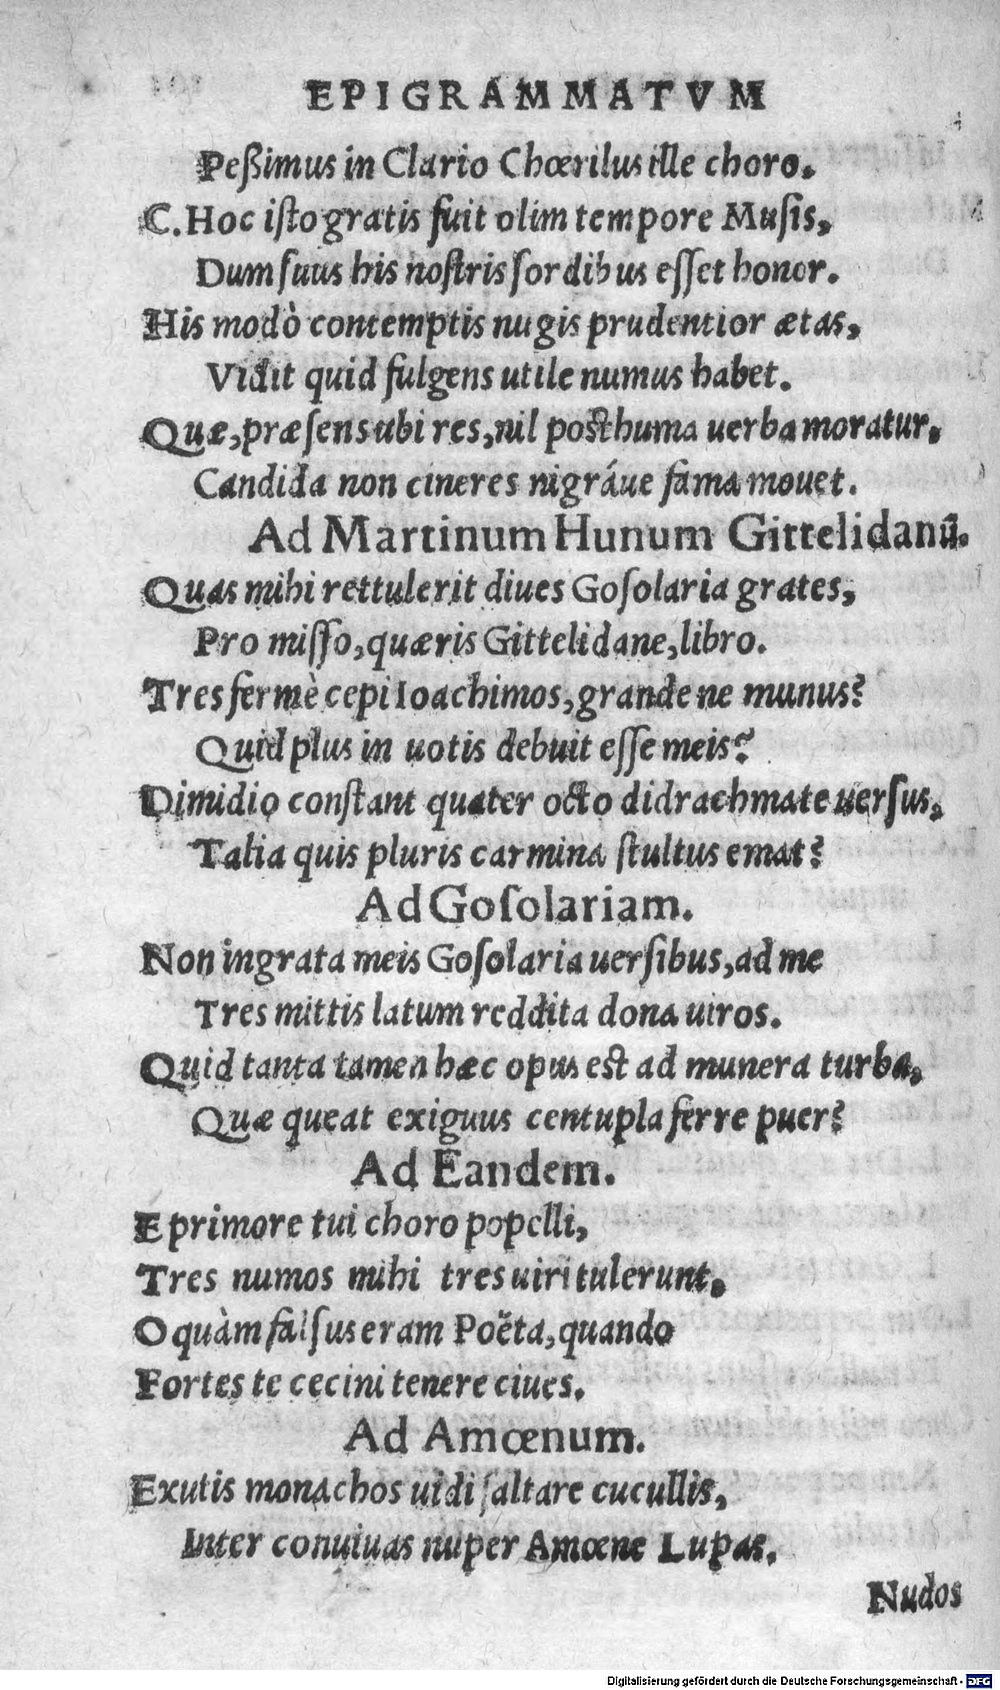 EPIGRAMMATVM
Peßimus in Clario Chœrilus ille choro.
C. Hoc isto gratis fuit olim tempore Musis,
Dum suus his nostris sordibus esset honor.
His modò contemptis nugis prudentior ætas,
Vidit quid fulgens utile numus habet.
Quæ, præsens ubi res, nil posthuma uerba moratur.
Candida non cineres nigráue fama mouet.
Ad Martinum Hunum Gittelidanū.
Quas mihi rettulerit diues Gosolaria grates,
Pro misso, quæris Gittelidane, libro.
Tres fermè cepi Ioachimos, grande ne munus?
Quid plus in uotis debuit esse meis?
Dimidio constant quater octo didrachmate uersus,
Talia quis pluris carmina stultus emat?
Ad Gosolariam.
Non ingrata meis Gosolaria uersibus, ad me
Tres mittis latum reddita dona uiros.
Quid tanta tamen hæc opus est ad munera turba,
Quæ queat exiguus centupla ferre puer?
Ad Eandem.
E primore tui choro popelli,
Tres numos mihi tres uiri tulerunt.
O quàm falsus eram Poëta, quando
Fortes te cecini tenere ciues.
Ad Amœnum.
Exutis monachos uidi saltare cucullis,
Inter conuiuas nuper Amœne Lupas.
Nudos
Digitalisierung gefördert durch die Deutsche Forschungsgemeinschaft - DFG